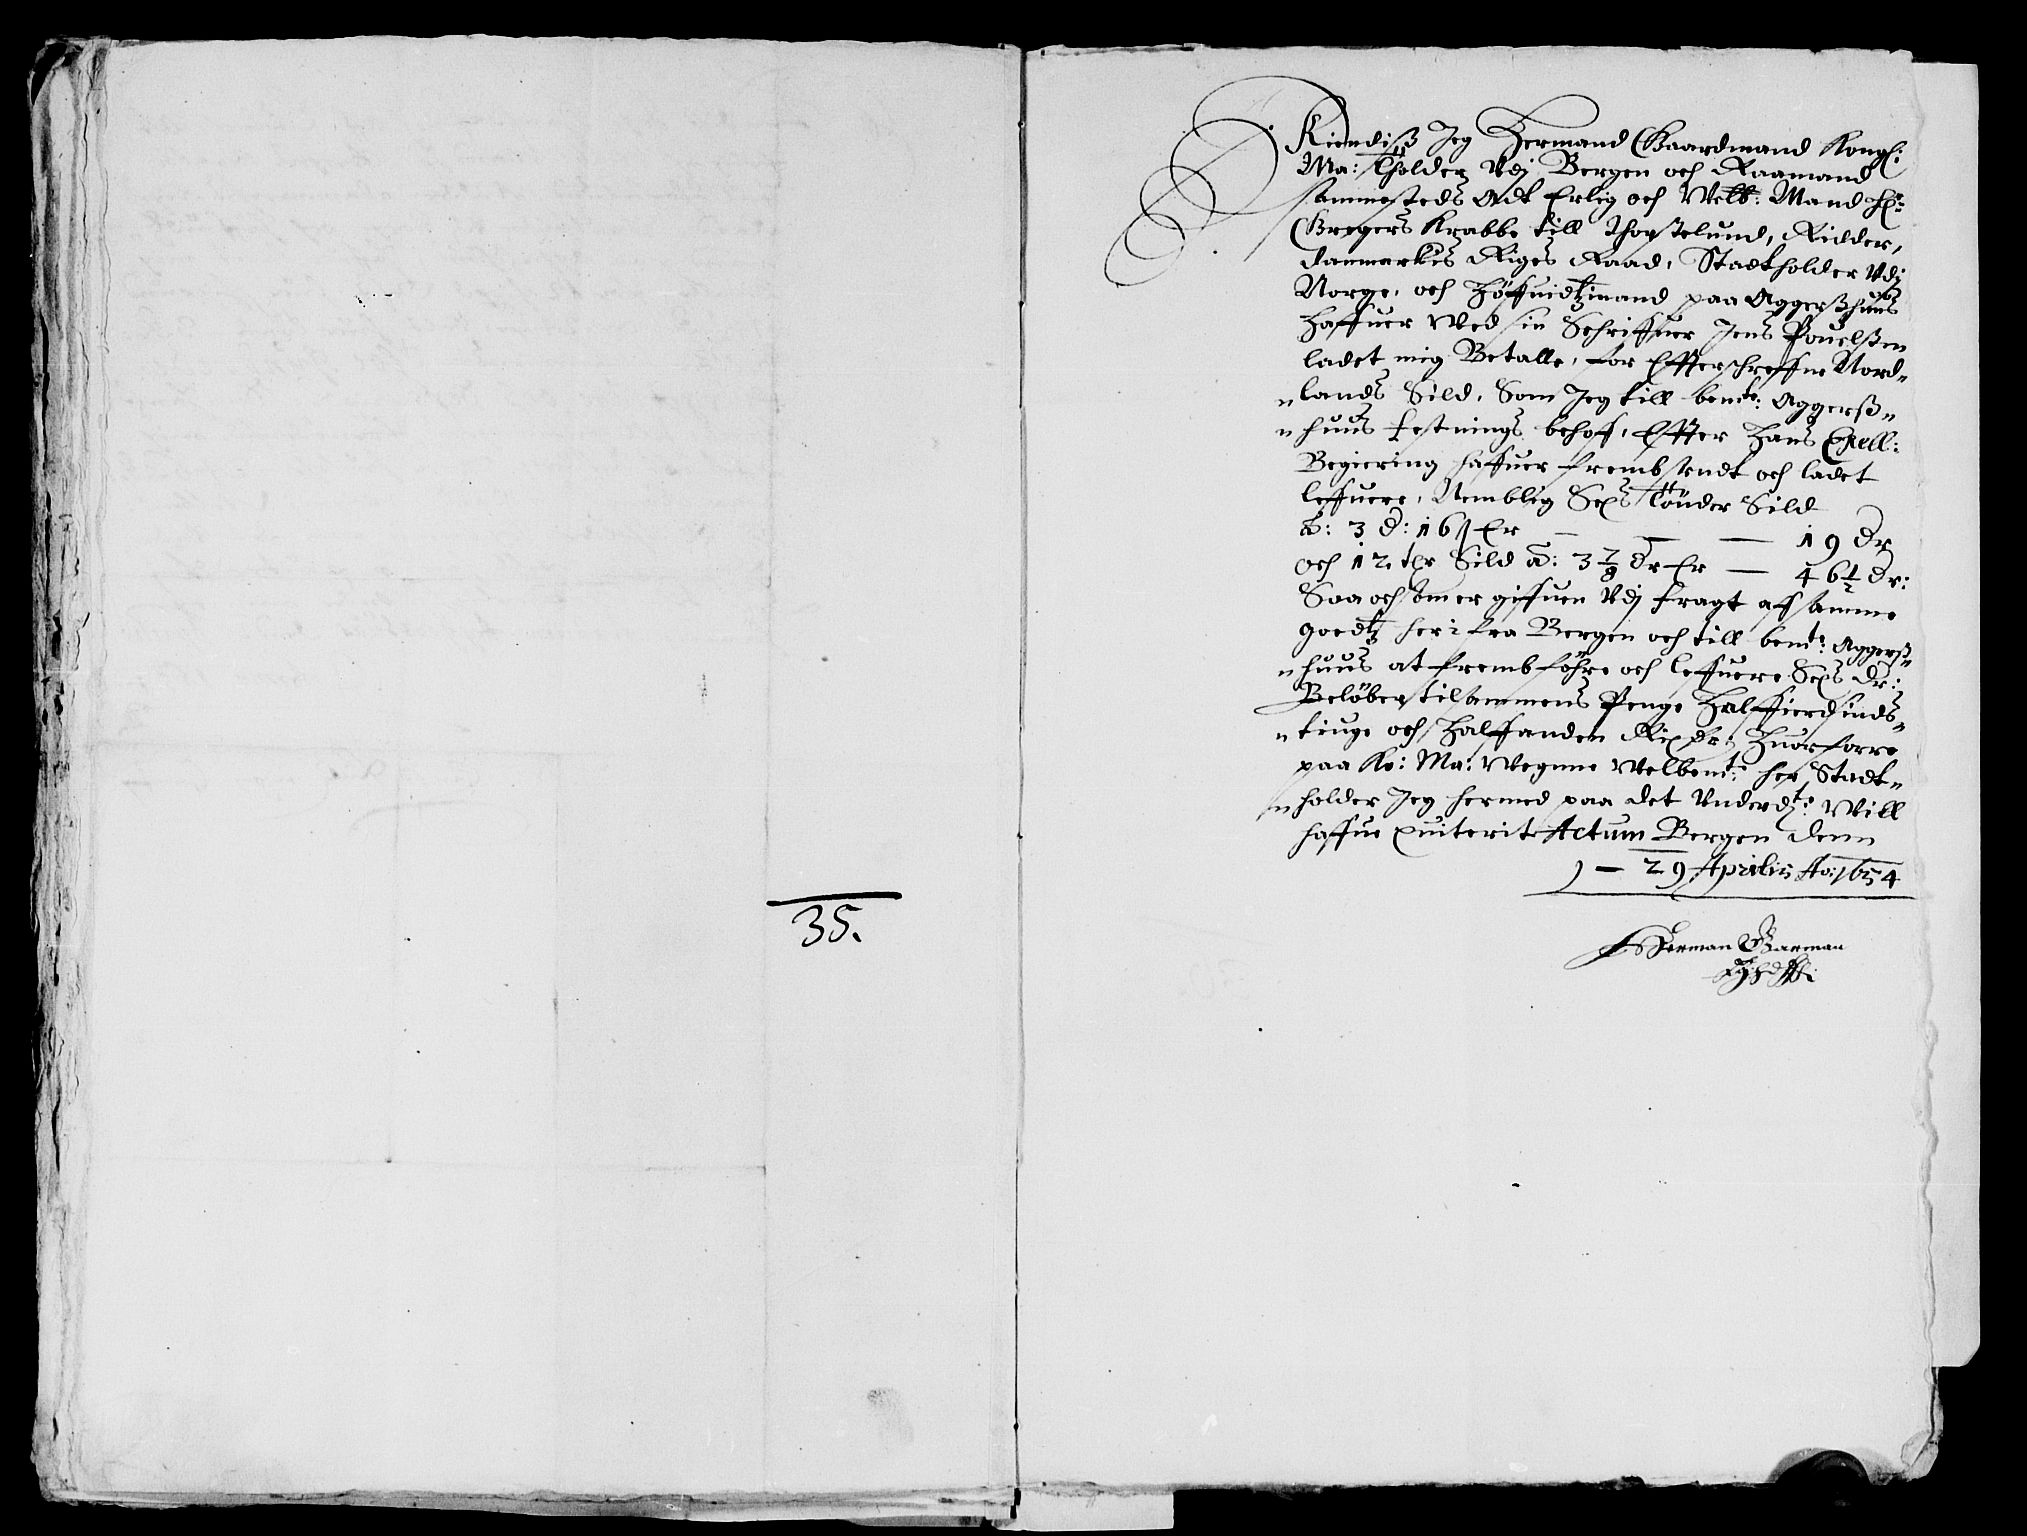 35.
Kiendiß Jeg Hermand Gaardmand Kongl:
Ma: Tholder Vdj Bergen och Raamand
sammesteds Adt Erlig och Welb: Mand Hr:
Gregers Krabbe till Thorstelund, Ridder,
danmarkis Riges Raad, Stadtholder Vdj
Norge, och Höffuidtzmand paa Aggerßhuus
Haffuer Wed sin Schriffuer Jens Pouelßen
ladet mig Betalle, for Effterschreffne Nord„
„lands Sild, Som Jeg till bemte: Aggerß„
„huus festnings behoff, Effter Hans Excell:
Begiering haffuer fremb sendt och ladet
leffuere, Nemblig Sex Tönder Sild
a: 3 d: 16 ß Er — — — 19 dr
och 12 tdr Sild a: 3 7/8 dr Er — 46 1/2 dr:
Saa och som er giffuen Vdj fragt aff samme
goedtz her i fra Bergen och till bemte: Aggerß„
„huus at fremb föhre och leffuere Sex dr:
Beløber tilsammens Penge Halffierdsinds„
„tiuge och Halffanden Rix dr: Huorforre
paa Ko: Ma: Wegnne Welbemte: her Stadt„
„holder Jeg hermed paa det Vnderdte: Will
haffue quiterit Actum Bergen denn
29 Aprilis Ao: 1654
Herman Garman